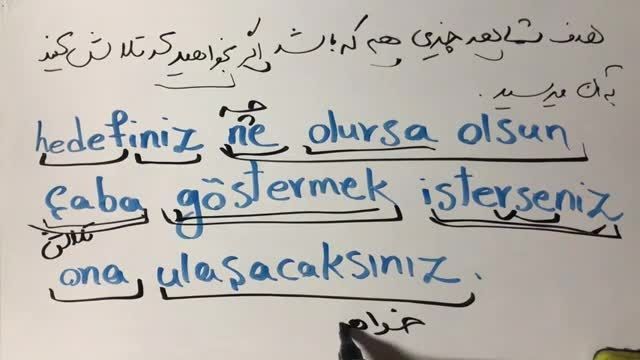 هدف شما هر چیزی هم که باشد اگر بخواهید که تلاش کنید
به آن میرسید.
چه
hedefiniz ne olursa olsun
çaba göstermek isterseniz
تلاش
ona ulaşacaksınız.
خواه